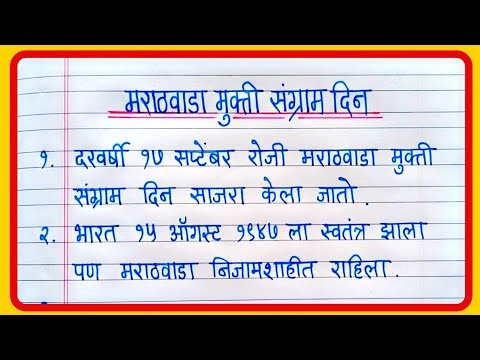 मराठवाडा मुक्ती संग्राम दिन
१. दरवर्षी १७ सप्टेंबर रोजी मराठवाडा मुक्ती
संग्राम दिन साजरा केला जातो.
२. भारत १५ ऑगस्ट १९४७ ला स्वतंत्र झाला
पण मराठवाडा निजामशाहीत राहिला.